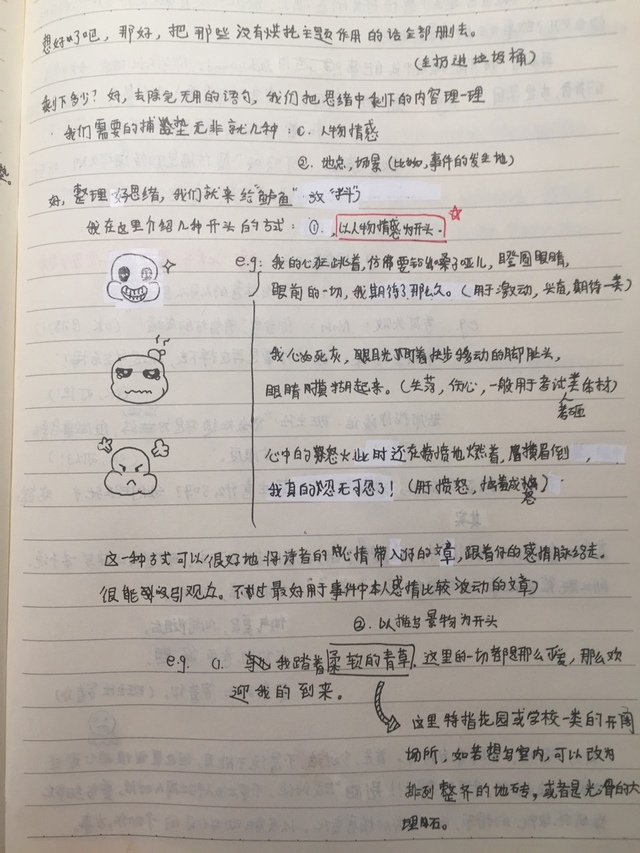 想好了吧，那好，把那些没有烘托主题作用的话全部删去。
(全扔进垃圾桶)
剩下多少？好，去除完无用的语句，我们把思绪中剩下的内容理一理
我们需要的铺垫无非就几种：①. 人物情感
②. 地点，场景(比如，事件的发生地)
好，整理好思绪，我们就来给"鲈鱼"放"料"）
我在这里介绍几种开头的方式：①. 以人物情感为开头.
e.g: 我的心狂跳着，仿佛要钻出嗓子哑儿，瞪圆眼睛，
眼前的一切，我期待了那么久。(用于激动，兴奋，期待一类)
我心如死灰，眼目光 着快步移动的脚趾头，
眼睛模糊起来。(失落，伤心，一般用于考试类体材)
考砸
心中的怒火此时还在愤愤地燃着，横眉倒 ，
我真的忍无可忍了！(用于愤怒， )
这一种方式可以很好地将读者的心情带入好的文章，跟着你的感情脉络走。
很能吸引观众。不过最好用于事件中本人感情比较波动的文章)
②. 以描写景物为开头
e.g. a. 我踏着柔软的青草，这里的一切都是那么可爱，那么欢
迎我的到来。
这里特指花园或学校一类的开阔
场所，如若想写室内，可以改为
排列整齐的地砖，或者是光滑的大
理石。